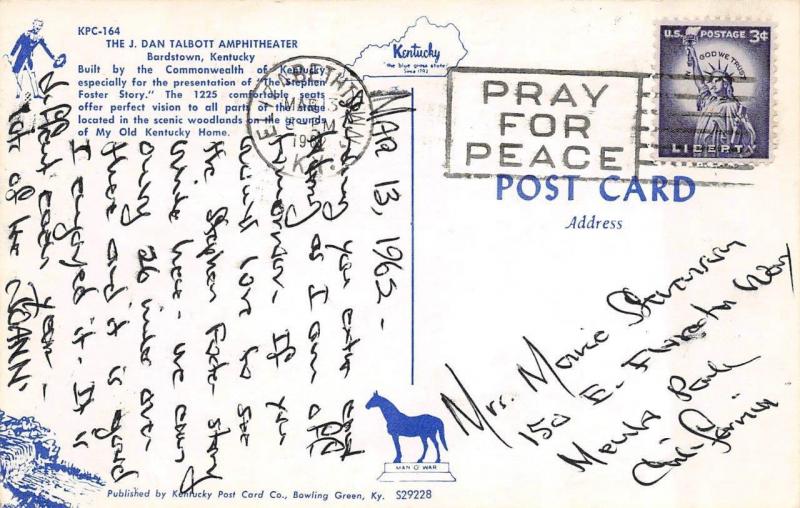 KPC-164
THE J. DAN TALBOTT AMPHITHEATER
Bardstown, Kentucky
Built by the Commonwealth of Kentucky
especially for the presentation of "The Stephen
Foster Story." The 1225 comfortable seats
offer perfect vision to all parts of the stage
located in the scenic woodlands on the grounds
of My Old Kentucky Home.
Kentucky
"the blue grass state"
Since 1792
ELIZABETHTOWN
MAR 13
PM
KY.
PRAY
FOR
PEACE
U.S. POSTAGE 3¢
IN GOD WE TRUST
LIBERTY
POST CARD
Address
MAR 13, 1962 -
Sending you extra card
today as I am off
tomorrow. If you
would love to see
the Stephen Foster Story
while here - we can
only 26 miles over
there and it is good
I enjoyed it - It is
different each year -
JOANN
Mrs. Marie
150 E.
Menlo Park
California
MAN O' WAR
Published by Kentucky Post Card Co., Bowling Green, Ky. S29228